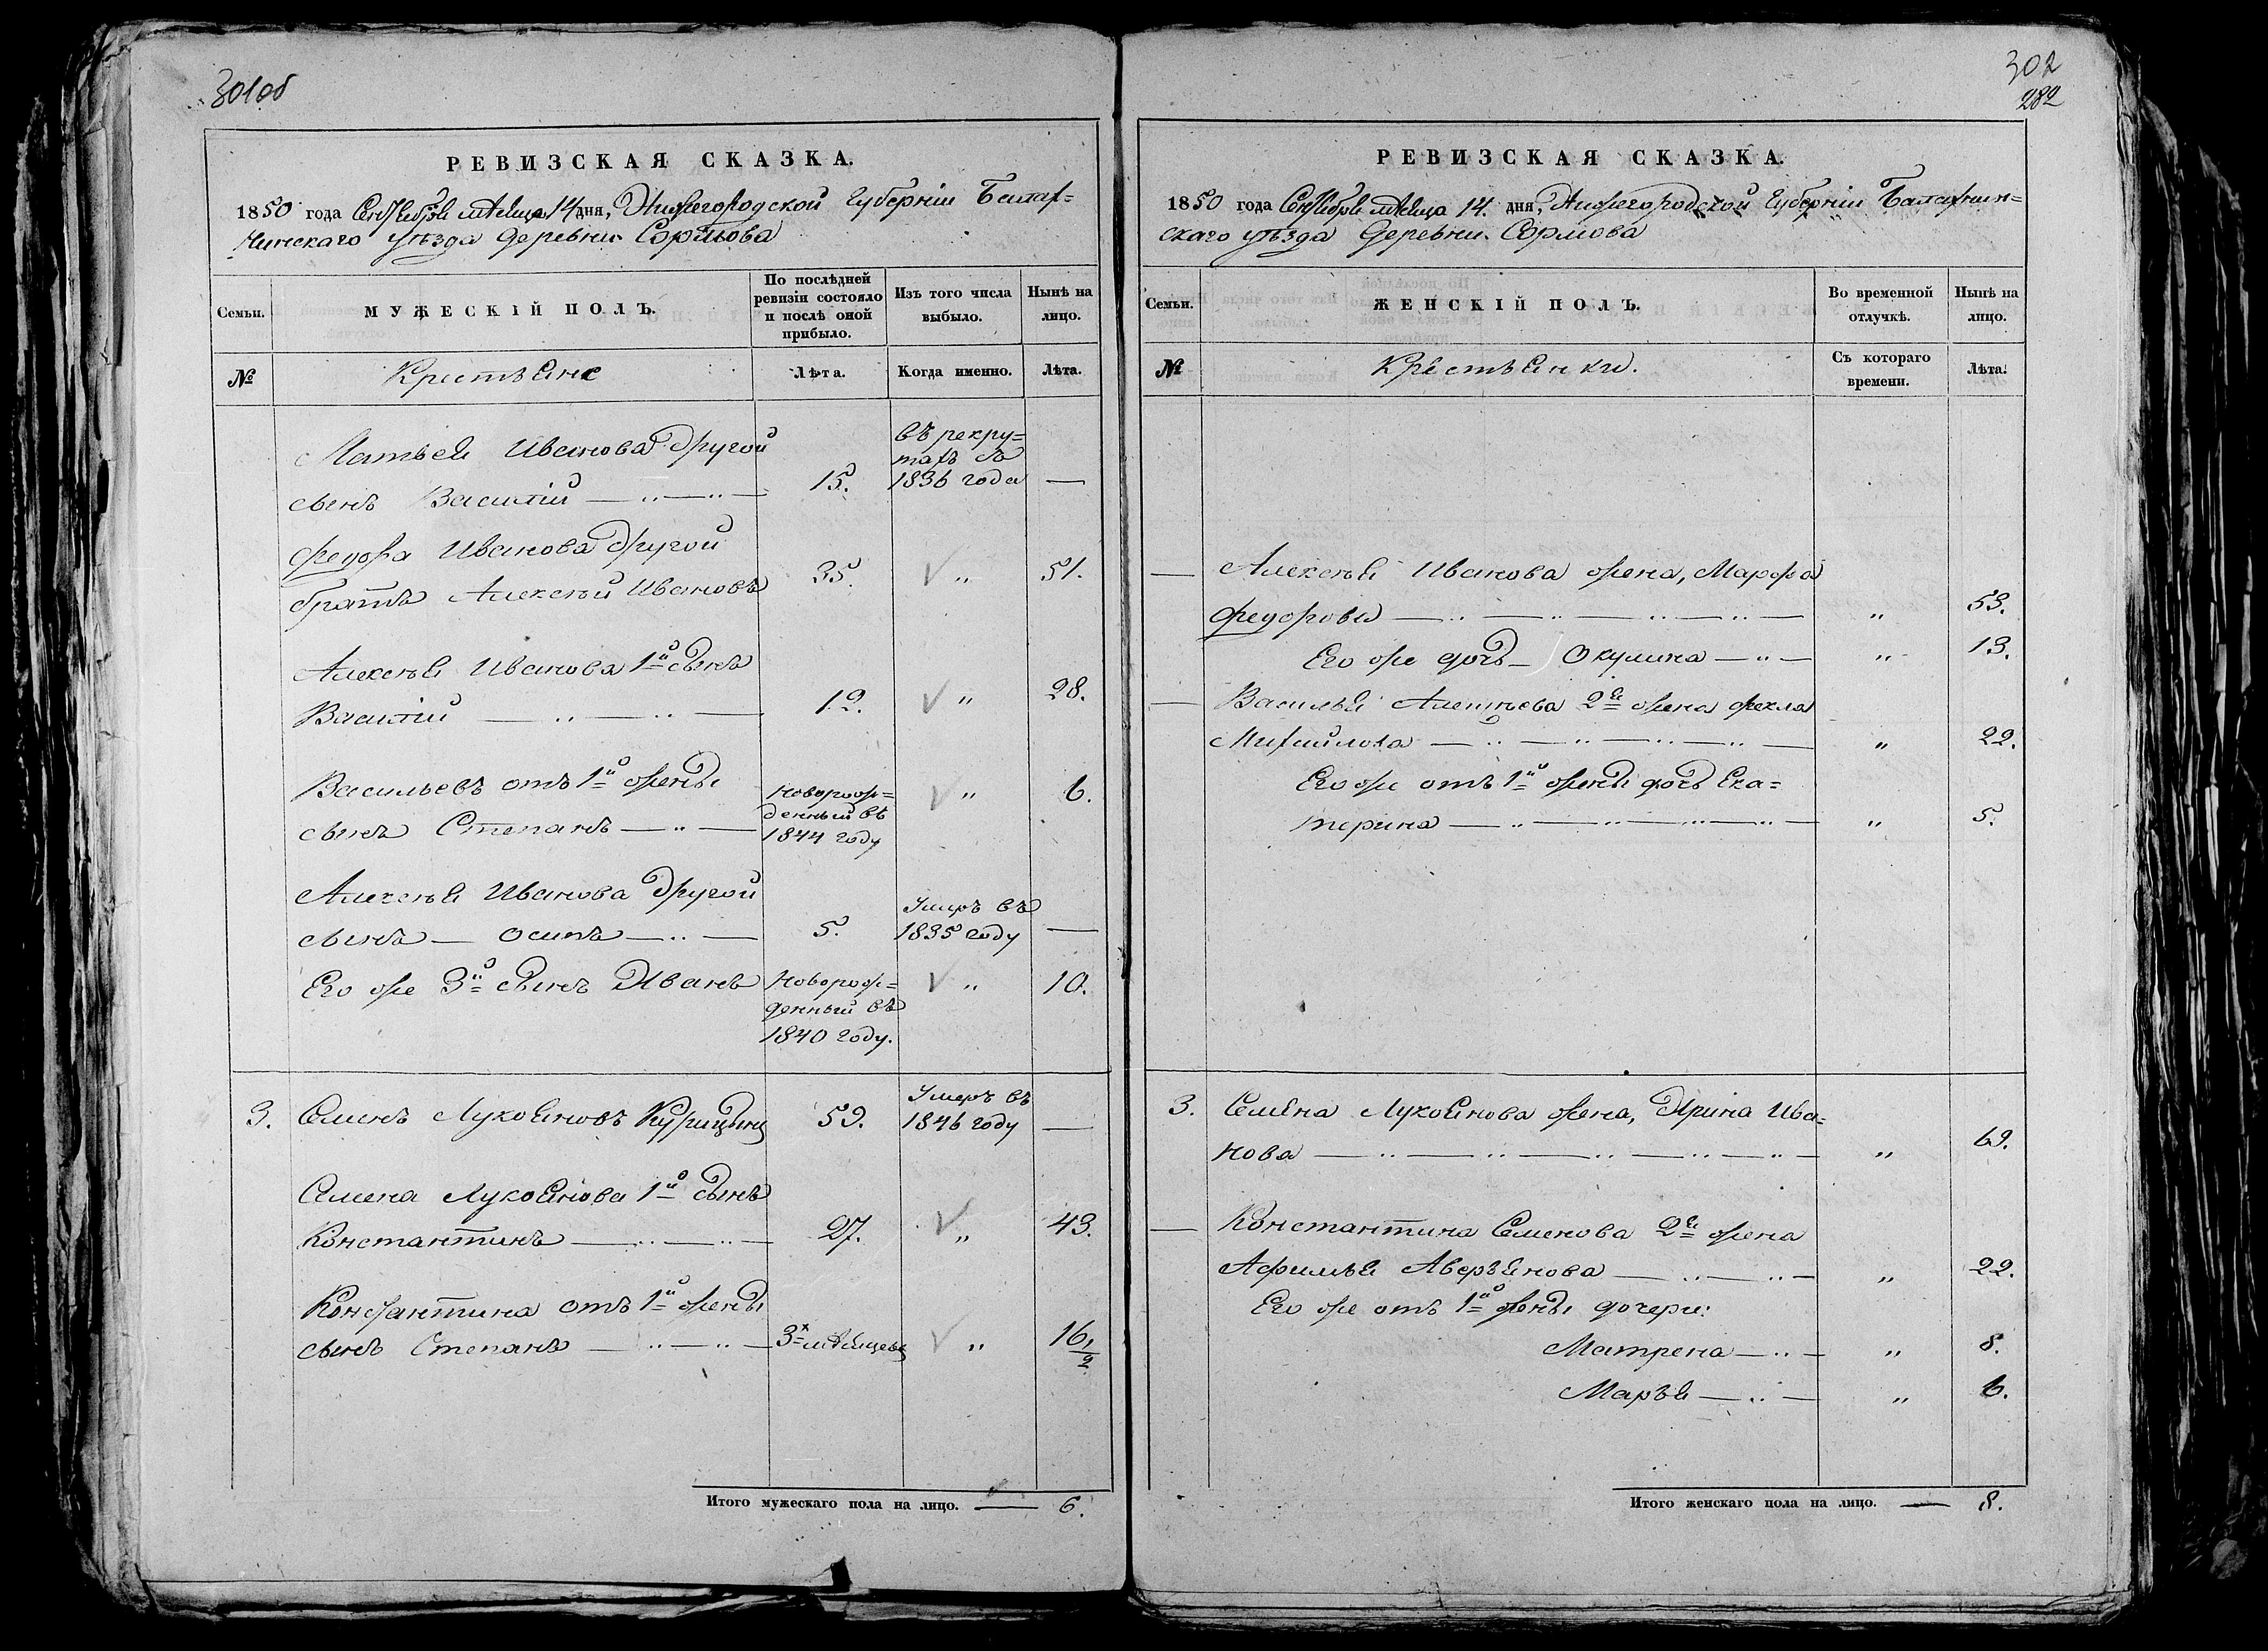 301об
РЕВИЗСКАЯ СКАЗКА.
1850 года Сентября мѣсяца 14 дня, Нижегородской Губерніи Балах=
нинскаго уѣзда деревни Сормова
Семьи.
МУЖЕСКІЙ ПОЛЪ.
По послѣдней
ревизіи состояло
и послѣ оной
прибыло.
Изъ того числа
выбыло.
Нынѣ на
лицо.
№
Крестьяне
Лѣта.
Когда именно.
Лѣта.
Матвея Иванова другой
сынъ Василій
15.
въ рекру=
тахъ съ
1836 года —
Федора Иванова другой
братъ Алексѣй Ивановъ
35. „ 51.
Алексѣя Иванова 1й сынъ
Василій
12. „ 28.
Васильевъ отъ 1й жены
сынъ Степанъ
новорож=
денный въ
1844 году
„ 6.
Алексѣя Иванова другой
сынъ — Осипъ
5.
Умеръ въ
1835 году —
Его же 3й сынъ Иванъ
Новорож=
денный въ
1840 году.
„ 10.
3. Семенъ Лукояновъ Курицынъ
59.
Умеръ въ
1846 году —
Семена Лукоянова 1й сынъ
Константинъ
27. „ 43.
Константина отъ 1й жены
сынъ Степанъ
3х мѣсяцевъ „ 16 1/2
Итого мужескаго пола на лицо. — 6.
302
282
РЕВИЗСКАЯ СКАЗКА.
1850 года Сентября мѣсяца 14. дня, Нижегородской Губерніи Балахнин=
скаго уѣзда деревни Сормова
Семьи.
ЖЕНСКІЙ ПОЛЪ.
Во временной
отлучкѣ.
Нынѣ на
лицо.
№
Крестьянки.
Съ котораго
времени.
Лѣта.
— Алексѣя Иванова жена, Марфа
Федорова „ 53.
Его же дочь — Окулина — „ 13.
— Василья Алексѣева 2я жена Фекла
Михайлова „ 22.
Его же отъ 1й жены дочь Ека=
терина „ 5.
3. Семена Лукоянова жена, Ирина Ива=
нова „ 69.
— Константина Семенова 2я жена
Афимья Аверьянова „ 22.
Его же отъ 1й жены дочери:
Матрена „ 8.
Марья „ 6.
Итого женскаго пола на лицо. — 8.